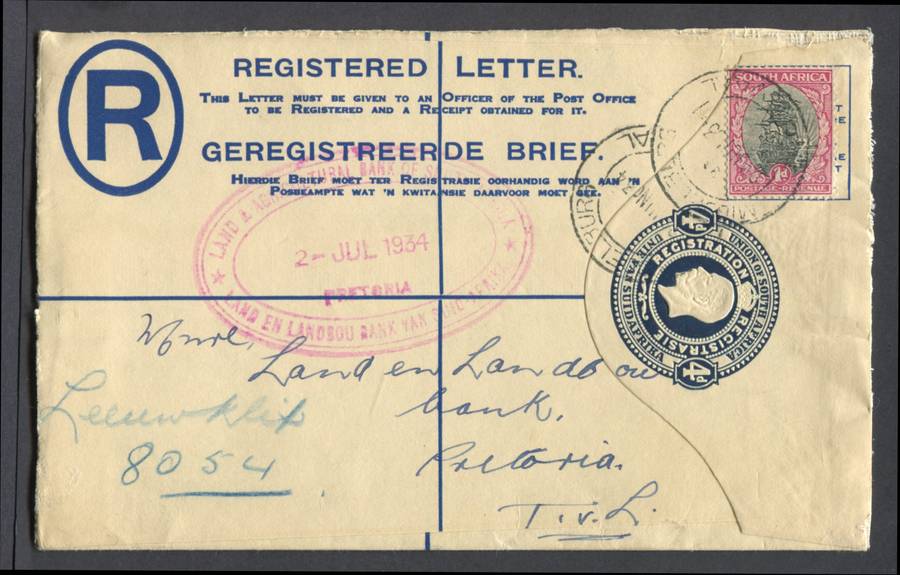 R
REGISTERED LETTER.
THIS LETTER MUST BE GIVEN TO AN OFFICER OF THE POST OFFICE
TO BE REGISTERED AND A RECEIPT OBTAINED FOR IT.
GEREGISTREERDE BRIEF.
HIERDIE BRIEF MOET TER REGISTRASIE OORHANDIG WORD AAN 'N
POSBEAMPTE WAT 'N KWITANSIE DAARVOOR MOET GEE.
SOUTH AFRICA
1d
POSTAGE-REVENUE
LAND & AGRICULTURAL BANK OF
2- JUL 1934
PRETORIA
LAND EN LANDBOU BANK VAN SUID-AFRIKA
4d
UNION OF SOUTH AFRICA
REGISTRATION
REGISTRASIE
4d
Land en Landbou
bank.
Pretoria.
T.v.L.
Leeuwklip
8054